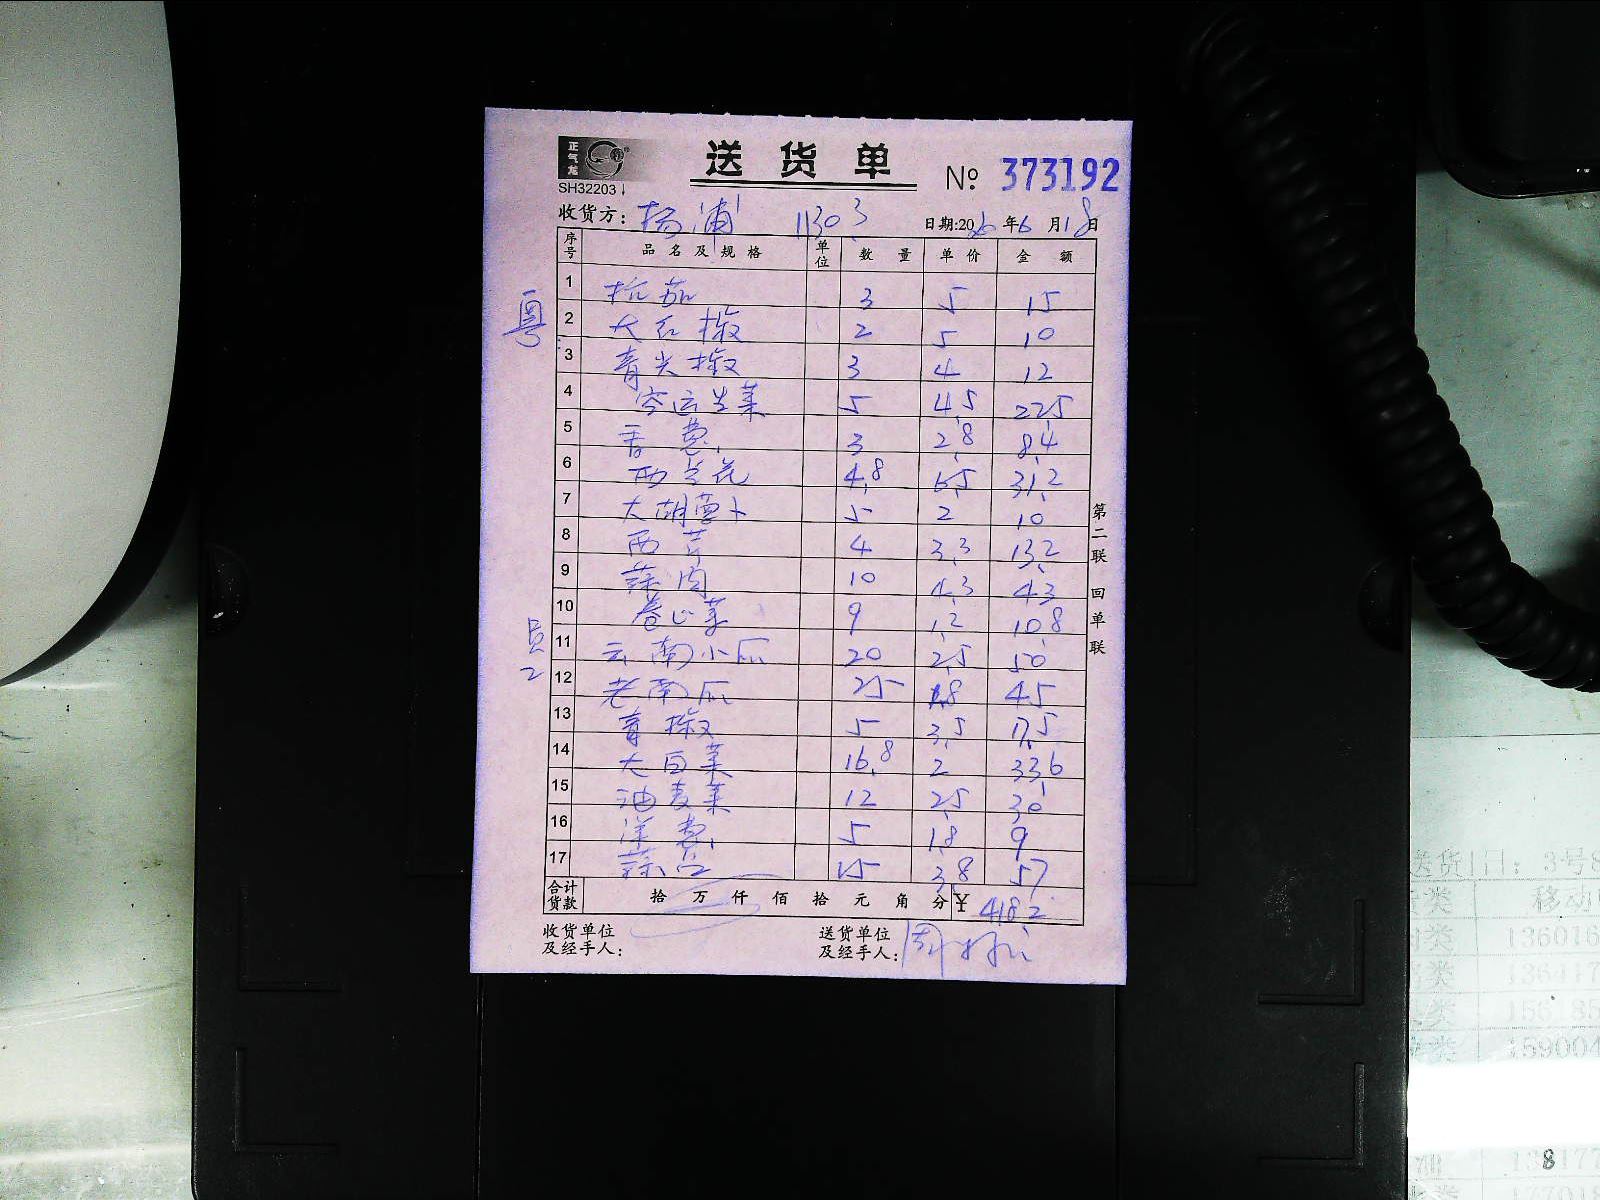 正气龙
送货单
№ 373192
SH32203
收货方: 杨浦 11303 日期:2020年6月18日
序号 品名及规格 单位 数量 单价 金额
粤
1 杭茄 3 5 15
2 大红椒 2 5 10
3 青尖椒 3 4 12
4 空运生菜 5 4.5 22.5
5 香葱 3 2.8 8.4
6 西兰花 4.8 6.5 31.2
7 大胡萝卜 5 2 10
8 西芹 4 3.3 13.2
9 蒜肉 10 4.3 43
10 卷心菜 9 1.2 10.8
员工
11 云南小瓜 20 2.5 50
12 老南瓜 25 1.8 45
13 青椒 5 3.5 17.5
14 大白菜 16.8 2 33.6
15 油麦菜 12 2.5 30
16 洋葱 5 1.8 9
17 蒜苔 15 3.8 57
合计货款 拾 万 仟 佰 拾 元 角 分 ¥ 418.2
收货单位及经手人:
送货单位及经手人:
第二联 回单联
送货1日: 3号8
类 移动
类 136016
类 136417
类 156185
类 159004